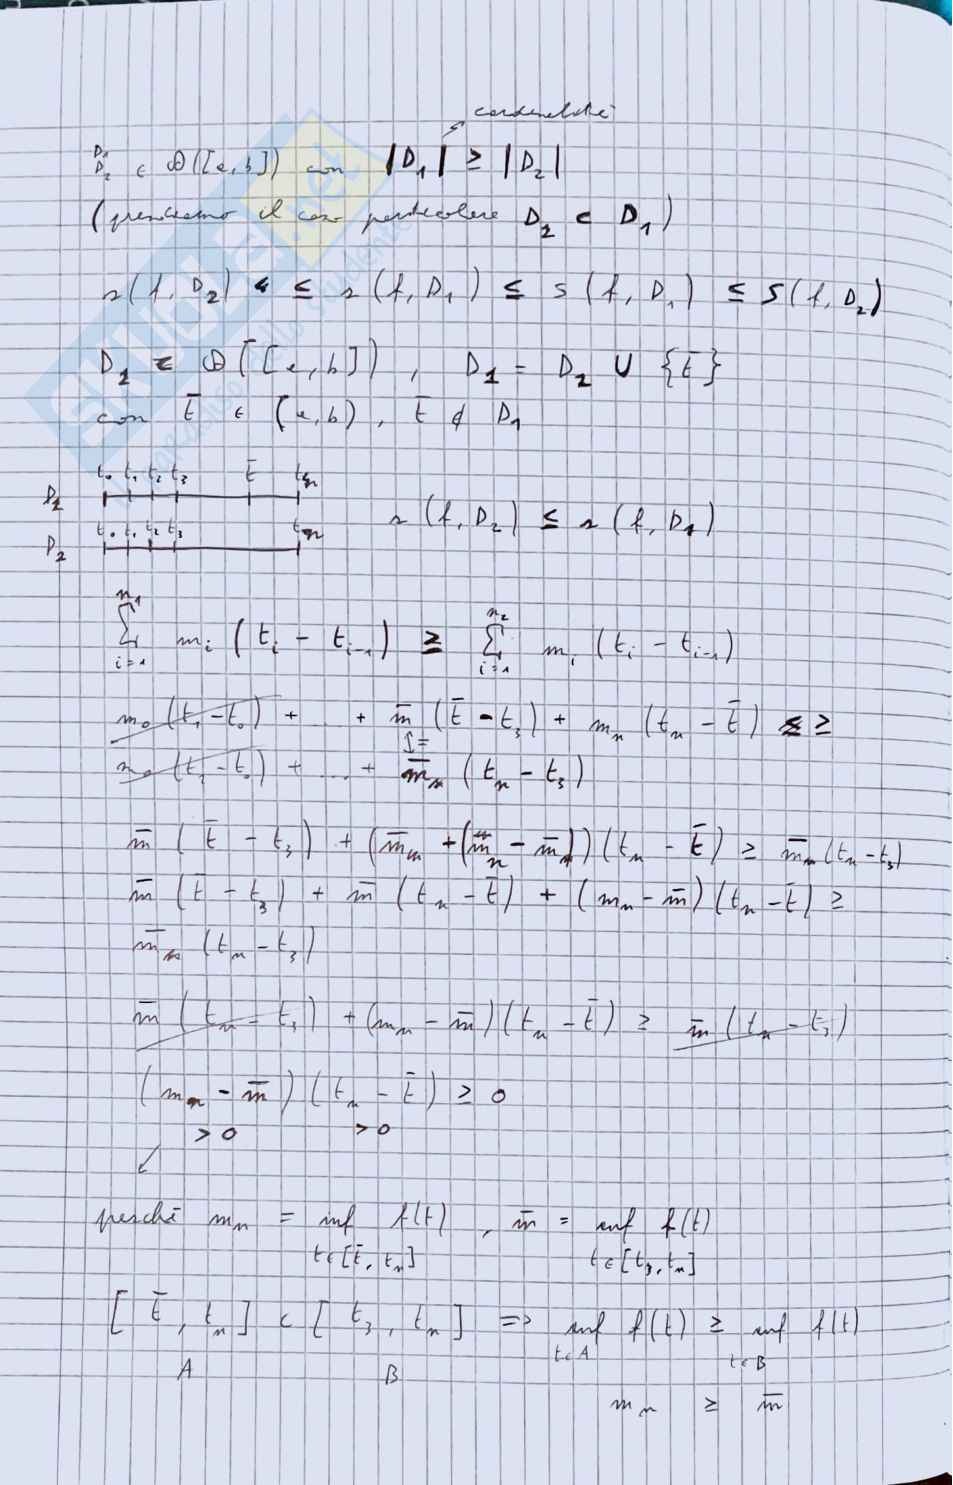 cardinalità
D₁ D₂ ∈ 𝒟([a,b]) con |D₁| ≥ |D₂|
(prendiamo il caso particolare D₂ ⊂ D₁)
s(f, D₂) ≤ s(f, D₁) ≤ S(f, D₁) ≤ S(f, D₂)
D₁ ∈ 𝒟([a,b]), D₁ = D₂ ∪ {t̄}
con t̄ ∈ (a,b), t̄ ∉ D₁
t₀ t₁ t₂ t₃ t̄ tₙ
D₁
s(f, D₂) ≤ s(f, D₁)
t₀ t₁ t₂ t₃ tₙ
D₂
∑_{i=1}^{n₁} mᵢ (tᵢ - tᵢ₋₁) ≥ ∑_{i=1}^{n₂} mᵢ (tᵢ - tᵢ₋₁)
m₀ (t₁ - t₀) + ... + m̄ (t̄ - t₃) + mₙ (tₙ - t̄) ≥
m₀ (t₁ - t₀) + ... + m̄ₙ (tₙ - t₃)
m̄ (t̄ - t₃) + (m̄ₙ + (mₙ - m̄ₙ)) (tₙ - t̄) ≥ m̄ₙ (tₙ - t₃)
m̄ (t̄ - t₃) + m̄ (tₙ - t̄) + (mₙ - m̄) (tₙ - t̄) ≥
m̄ₙ (tₙ - t₃)
m̄ (tₙ - t₃) + (mₙ - m̄) (tₙ - t̄) ≥ m̄ (tₙ - t₃)
(mₙ - m̄) (tₙ - t̄) ≥ 0
>0 >0
perché mₙ = inf f(t), m̄ = inf f(t)
t∈[t̄, tₙ] t∈[t₃, tₙ]
[t̄, tₙ] ⊂ [t₃, tₙ] => inf f(t) ≥ inf f(t)
t∈A t∈B
A B
mₙ ≥ m̄
SKUOLA.net